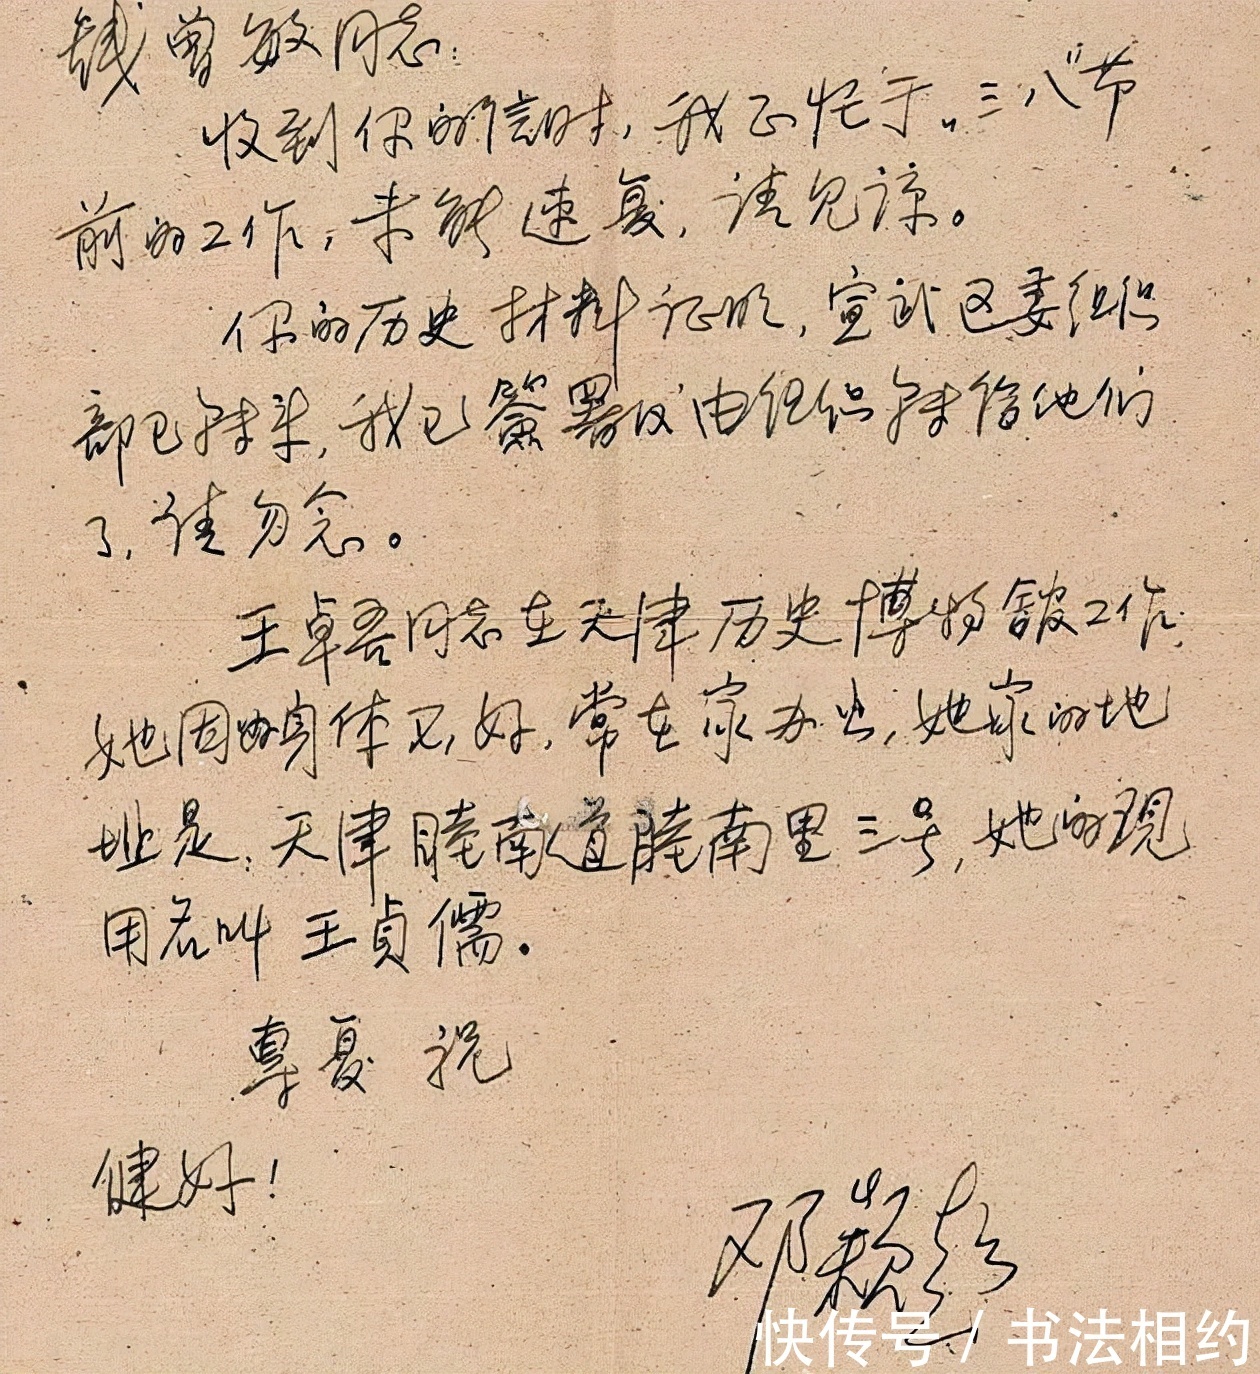 钱曾敏同志：
收到你的信时，我正忙于“三八”节
前的工作，未能速复，请见谅。
你的历史材料证明，宣武区委组织
部已转来，我已签署仪由组织转给他们
了，请勿念。
王卓吾同志在天津历史博物馆工作，
她因身体不好，常在家办公，她家的地
址是：天津睦南道睦南里三号，她的现
用名叫王贞儒。
专复 祝
健好！
邓颖超
快传号 / 书法相约